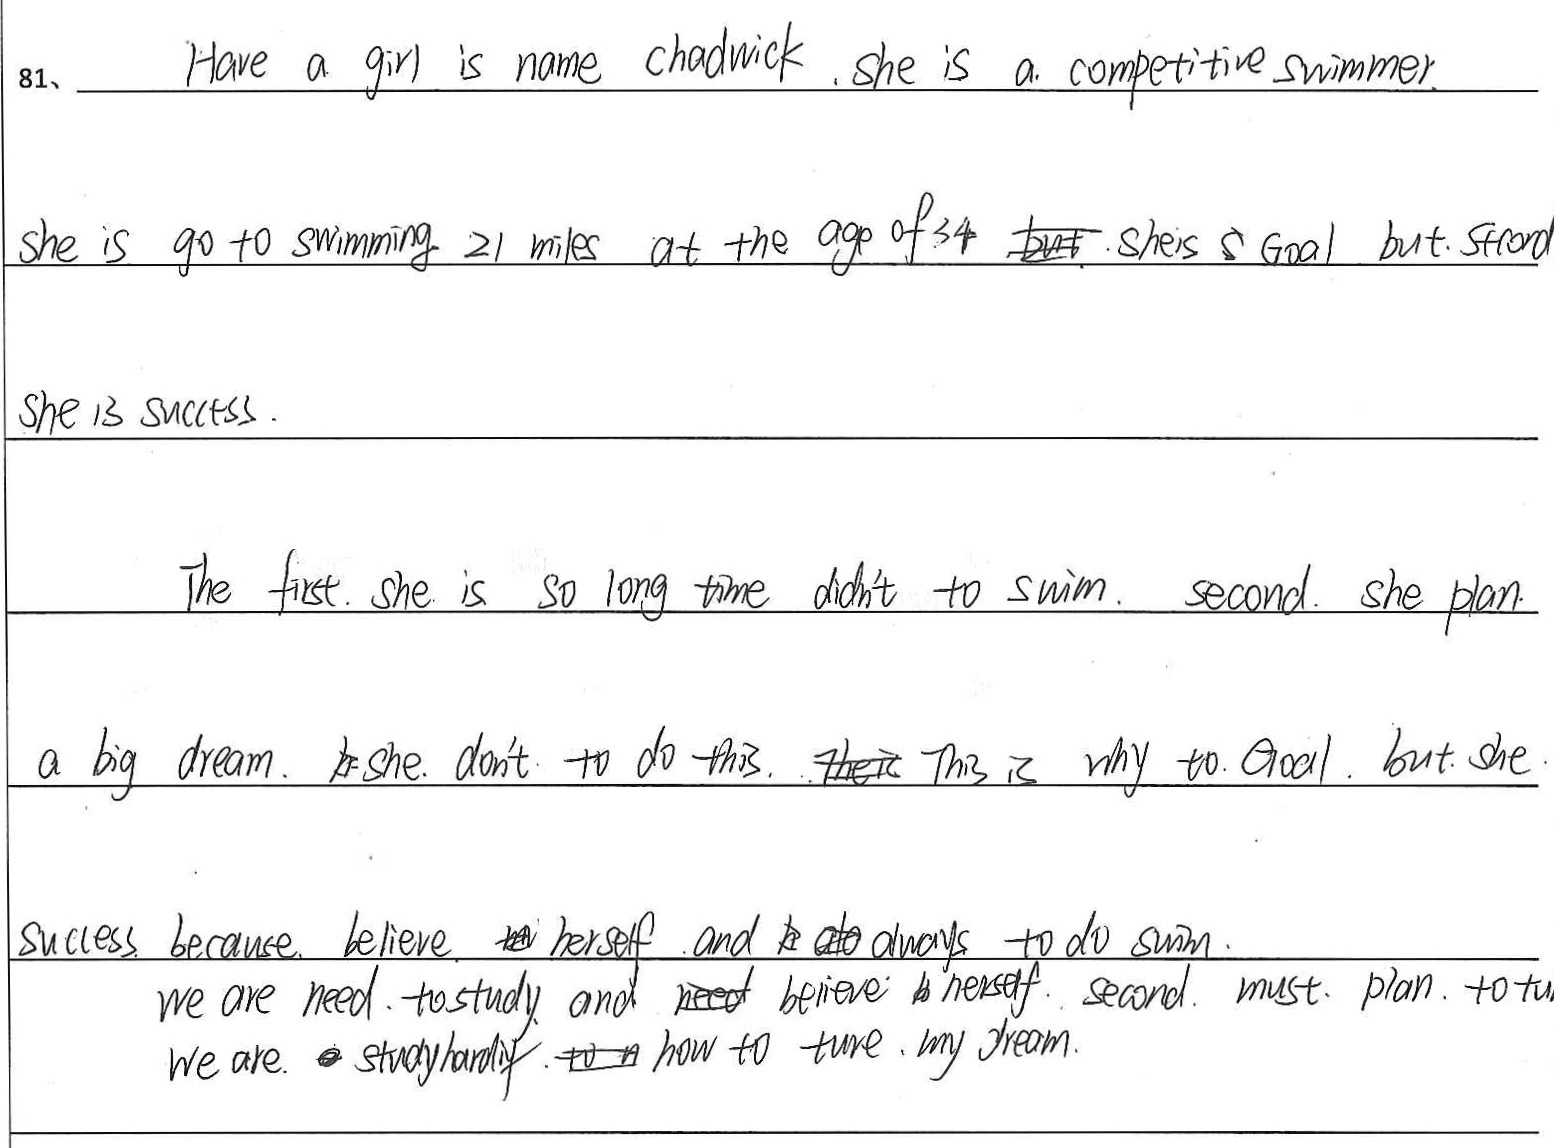 81、 Have a girl is name chadwick . she is a competitive swimmer.
she is go to swimming 21 miles at the age of 34 she is Goal but. Second
she is success.
The first. she is so long time didn't to swim. second. she plan.
a big dream. she. don't to do this. This is why to. Goal. but. she.
success. because. believe. herself. and always to do swim.
we are need. to study. and believe herself. second. must. plan. to
we are. study hardly. how to ture. my dream.